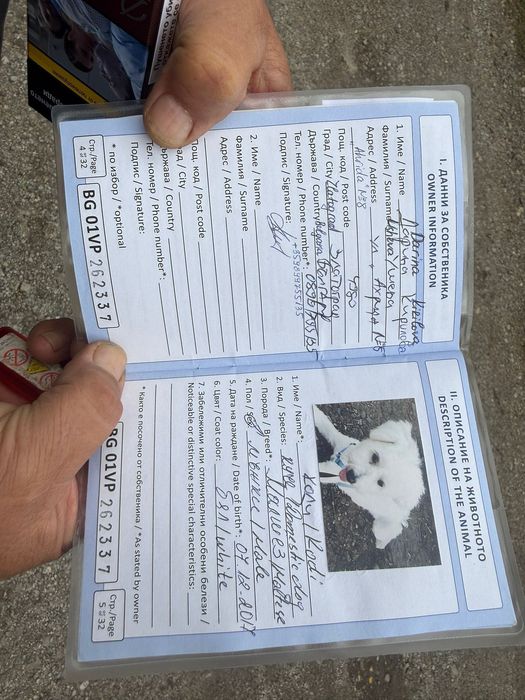 I. ДАННИ ЗА СОБСТВЕНИКА
OWNER INFORMATION
1. Име / Name
Фамилия / Surname
Адрес / Address ул. Ахрида №8
Ahrida №8
Пощ. код / Post code
Град / City Zlatograd Златоград
Държава / Country България
Тел. номер / Phone number*:
Подпис / Signature:
2. Име / Name
Фамилия / Surname
Адрес / Address
Пощ. код / Post code
Град / City
Държава / Country
Тел. номер / Phone number*:
Подпис / Signature:
* по избор / *optional
Стр./Page
4 от 32
BG 01VP 262337
II. ОПИСАНИЕ НА ЖИВОТНОТО
DESCRIPTION OF THE ANIMAL
1. Име / Name*: Коди / Kodi
2. Вид / Species: куче / Domestic dog
3. Порода / Breed*: Малтез / Maltese
4. Пол / мъжки / Male
5. Дата на раждане / Date of birth*:
6. Цвят / Coat color: бял / white
7. Забележими или отличителни особени белези /
Noticeable or distinctive special characteristics:
* Както е посочено от собственика / *As stated by owner
BG 01VP 262337
Стр./Page
5 от 32